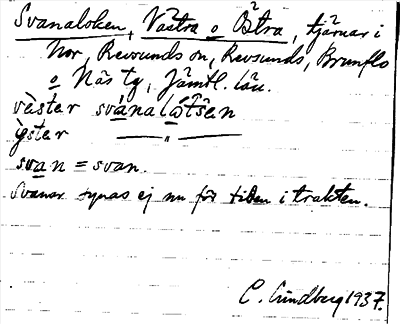 Svanaloken, Västra o Östra, tjärnar i
Nor, Revsunds sn, Revsunds, Brunflo
o Näs tg, Jämtl. län.
vèster svánalåtšen
ỳster —— „ ——
svan = svan.
Svanar synas ej nu för tiden i trakten.
C. Lundberg 1937.